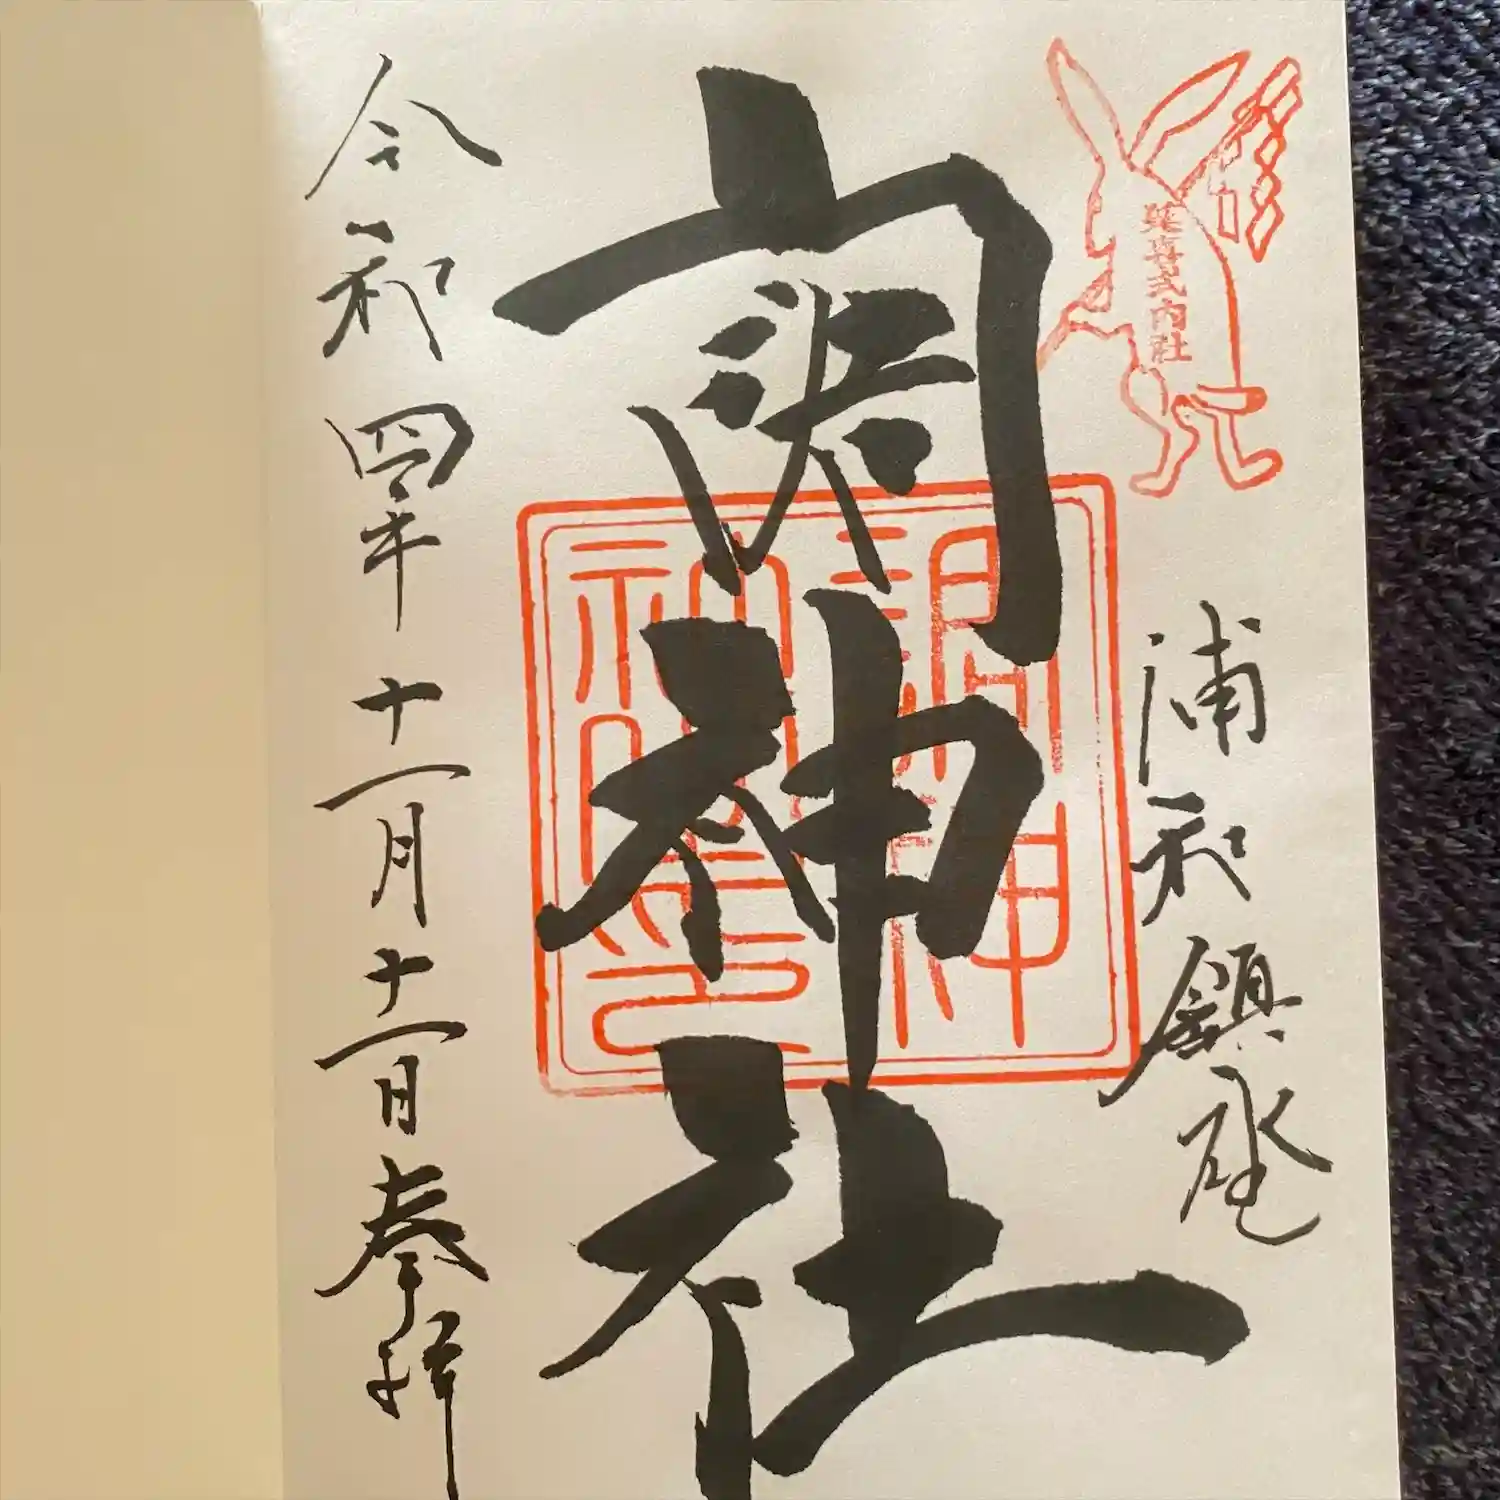 延喜式内社
浦和鎮座
調神社
調神
令和四年十一月十一日奉拝